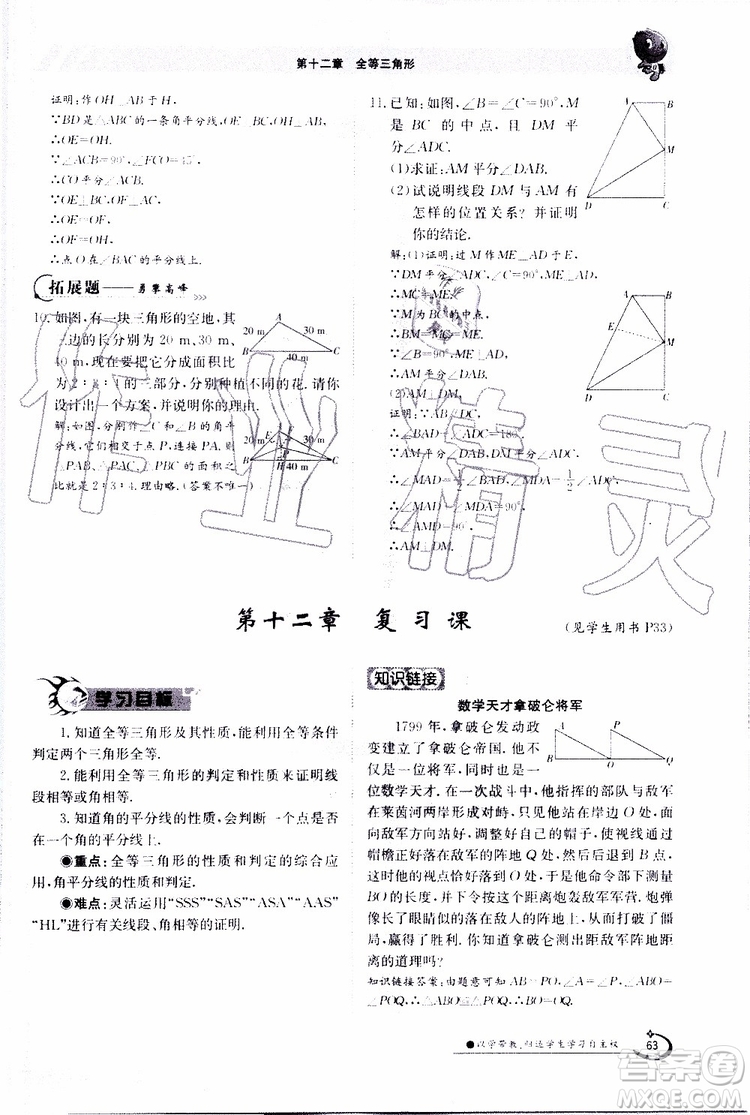 第十二章 全等三角形
证明:作OH⊥AB于H,
∵BD是△ABC的一条角平分线,
∴OE=OH.
∵∠ACB=90°,∠ECO=45°.
∴CO平分∠ACB.
∵OE⊥BC,OF⊥AC,
∴OE=OF,
∴OF=OH,
∴点O在∠BAC的平分线上.
拓展题——勇攀高峰
10. 如图,有一块三角形的空地,其
三边的长分别为20 m,30 m,
40 m,现在要把它分成面积比
为2∶3∶4的三部分,分别种植不同的花.请你
设计出一个方案,并说明你的理由.
20 m
A
30 m
B
40 m
C
解:如图,分别作∠C和∠B的角平
分线,它们交于点P,连接PA.则
△PAB、△PAC、△PBC的面积之
比就是2∶3∶4.理由略.(答案不唯一)
20 m
A
30 m
E
P
B
H
40 m
C
11. 已知:如图,∠B=∠C=90°,M
是BC的中点,且DM平
分∠ADC.
(1)求证:AM平分∠DAB.
(2)试说明线段DM与AM有
怎样的位置关系?并证明
你的结论.
A
B
M
D
C
解:(1)证明:过M作ME⊥AD于E,
∵DM平分∠ADC,∠C=90°,
∴MC=ME.
∵M为BC的中点,
∴BM=MC=ME.
∵∠B=90°,
∴AM平分∠DAB.
(2)AM⊥DM.
A
B
E
M
D
C
证明:∵AB∥DC,
∴∠BAD+∠ADC=180°.
∵∠MAD=1/2∠BAD,∠MDA=1/2∠ADC,
∴∠MAD+∠MDA=90°,
∴∠AMD=90°.
∴AM⊥DM.
第十二章 复习课
(见学生用书P33)
学习目标
1. 知道全等三角形及其性质,能利用全等条件
判定两个三角形全等.
2. 能利用全等三角形的判定和性质来证明线
段相等或角相等.
3. 知道角的平分线的性质,会判断一个点是否
在一个角的平分线上.
●重点:全等三角形的性质和判定的综合应
用,角平分线的性质和判定.
●难点:灵活运用“SSS”“SAS”“ASA”“AAS”
“HL”进行有关线段、角相等的证明.
知识链接
数学天才拿破仑将军
1799年,拿破仑发动政
变建立了拿破仑帝国.他不
仅是一位将军,同时还是一
位数学天才.在一次战斗中,他指挥的部队与敌军
在莱茵河两岸形成对峙,拿破仑站在岸边O处,面
向敌军方向站好,调整好自己的帽子,使视线通过
帽檐正好落在敌军的阵地Q处,然后他命令部下测量
BO的长度,并下令按这个距离炮轰敌军军营.炮弹
像长了眼睛似的落在敌人的阵地上,打破了战争的僵
局,赢得了胜利.你知道拿破仑测出距敌军阵地距
离的道理吗?
A
P
B
O
Q
知识链接答案:由题意可知AB=PO,∠A=∠P,∠ABO=∠
POQ,∴△ABO≌△POQ,∴BO=OQ.
●以学带教,归还学生学习自主权
63
作业精灵
答案圈